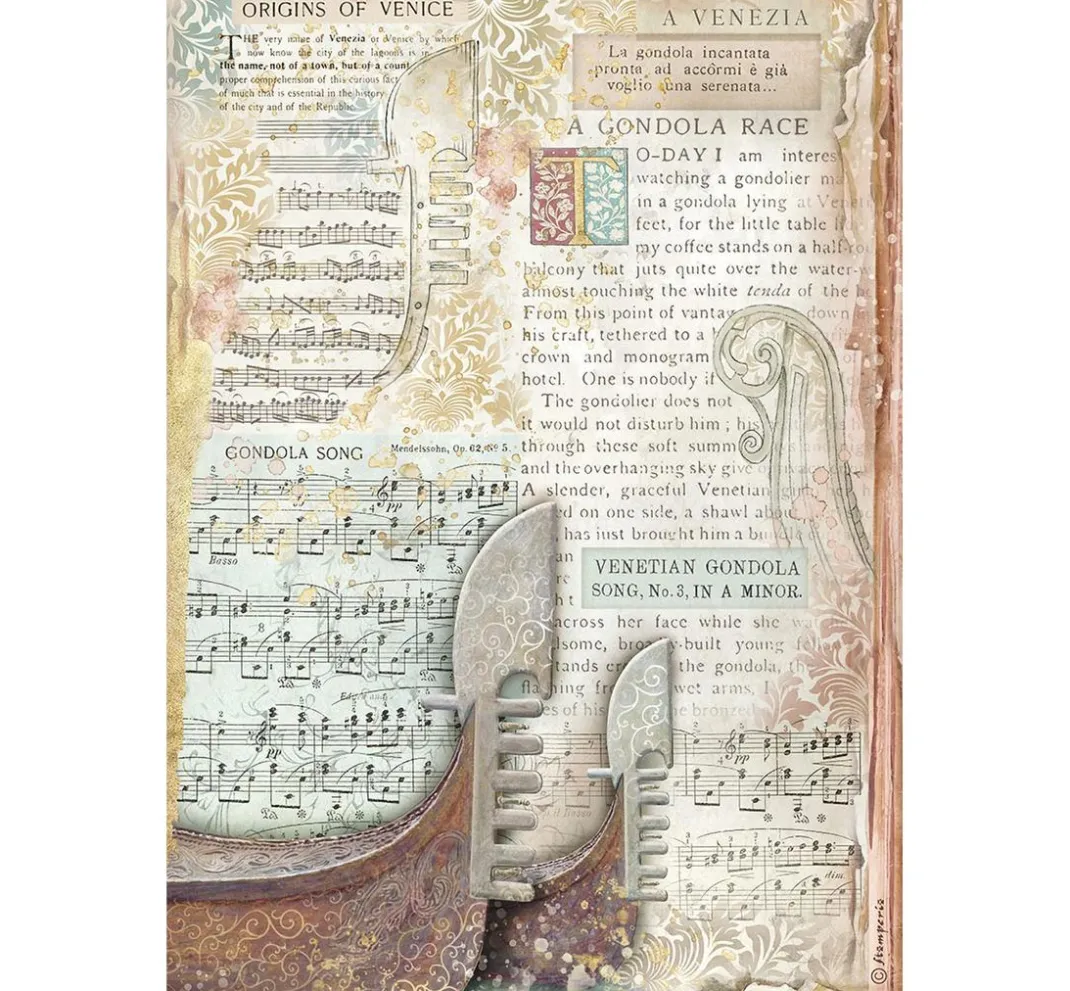 ORIGINS OF VENICE
THE very name of Venezia or Venice by which
now know the city of the lagoons is in
the name, not of a town, but of a count
proper comprehension of this curious fact
of much that is essential in the history
of the city and of the Republic.
A VENEZIA
La gondola incantata
pronta ad accórmi è già
voglio una serenata...
A GONDOLA RACE
TO-DAY I am interes
watching a gondolier
in a gondola lying at
feet, for the little table
my coffee stands on a half-
balcony that juts quite over the water-
almost touching the white tenda of the
From this point of vantag down
his craft, tethered to a
crown and monogram of
hotel. One is nobody if
The gondolier does not
it would not disturb him ; his
through these soft summ
and the overhanging sky give
A slender, graceful Venetian girl
ed on one side, a shawl about
has just brought him a bundle
an
VENETIAN GONDOLA
SONG, No. 3, IN A MINOR.
re
ht
across her face while she
some, bro y-built young
tands the gondola,
fla ing fr wet arms, I
es of his e bronzed
GONDOLA SONG
Mendelssohn, Op. 62, Nº 5.
pp
Basso
8
pp
pp
dim.
© stamperia